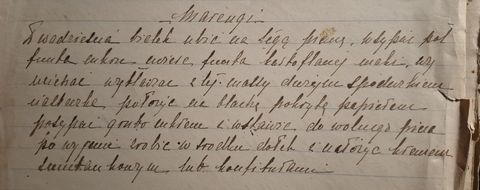 Marengi
Dwadzieścia białek ubić na tęgą pianę, wsypać pół
funta cukru ćwierć funta kartoflanej mąki, wy
mieszać wykładać z tej masy dużym
położyć na blachę pokrytą papierem
posypać grubo cukrem i wstawić do wolnego pieca
po wyjęciu zrobić w środku dołek i nałożyć kremem
śmietankowym lub konfiturami